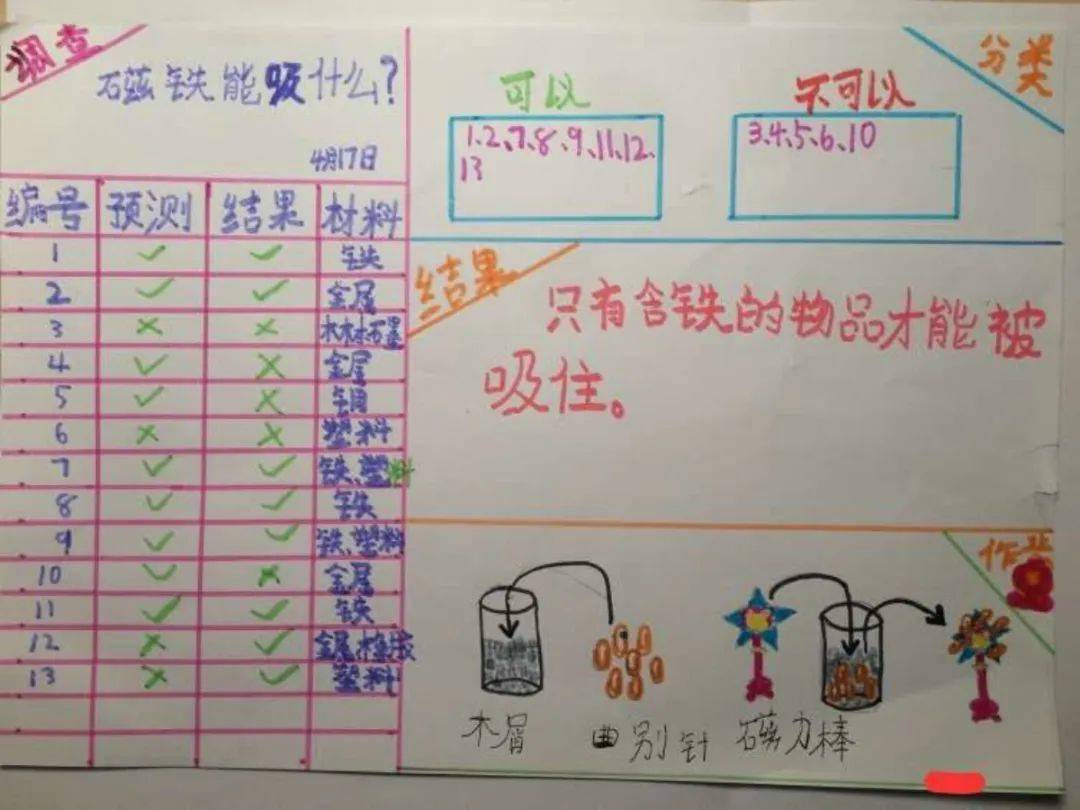 调查
磁铁能吸什么?
4月17日
编号 预测 结果 材料
1 ✓ ✓ 铁
2 ✓ ✓ 金属
3 × × 木木石墨
4 ✓ × 金属
5 ✓ × 铜
6 × × 塑料
7 ✓ ✓ 铁、塑料
8 ✓ ✓ 铁
9 ✓ ✓ 铁、塑料
10 ✓ × 金属
11 ✓ ✓ 铁
12 × ✓ 金属、橡胶
13 × ✓ 塑料
分类
可以 不可以
1、2、7、8、9、11、12、
13
3、4、5、6、10
结果
只有含铁的物品才能被
吸住。
作业
木屑 曲别针 磁力棒